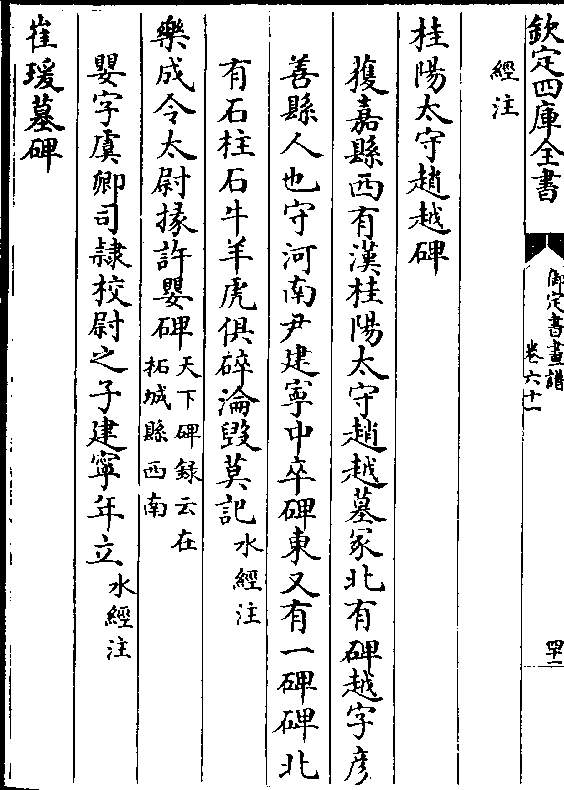 欽定四庫全書
御定書畫譜
卷六十一
四十一
經注
桂陽太守趙越碑
獲嘉縣西有漢桂陽太守趙越墓冢北有碑越字彦
善縣人也守河南尹建寧中卒碑東又有一碑碑北
有石柱石牛羊虎俱碎淪毀莫記水經注
樂成令太尉掾許嬰碑天下碑録云在
柘城縣西南
嬰字虞卿司隷校尉之子建寧年立水經注
崔瑗墓碑